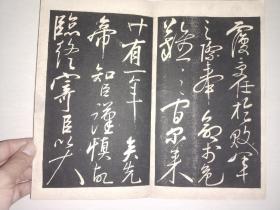 覆受任於敗軍
之際奉命於危
難之間爾來
廿有一年矣先
帝知臣謹慎故
臨終寄臣以大